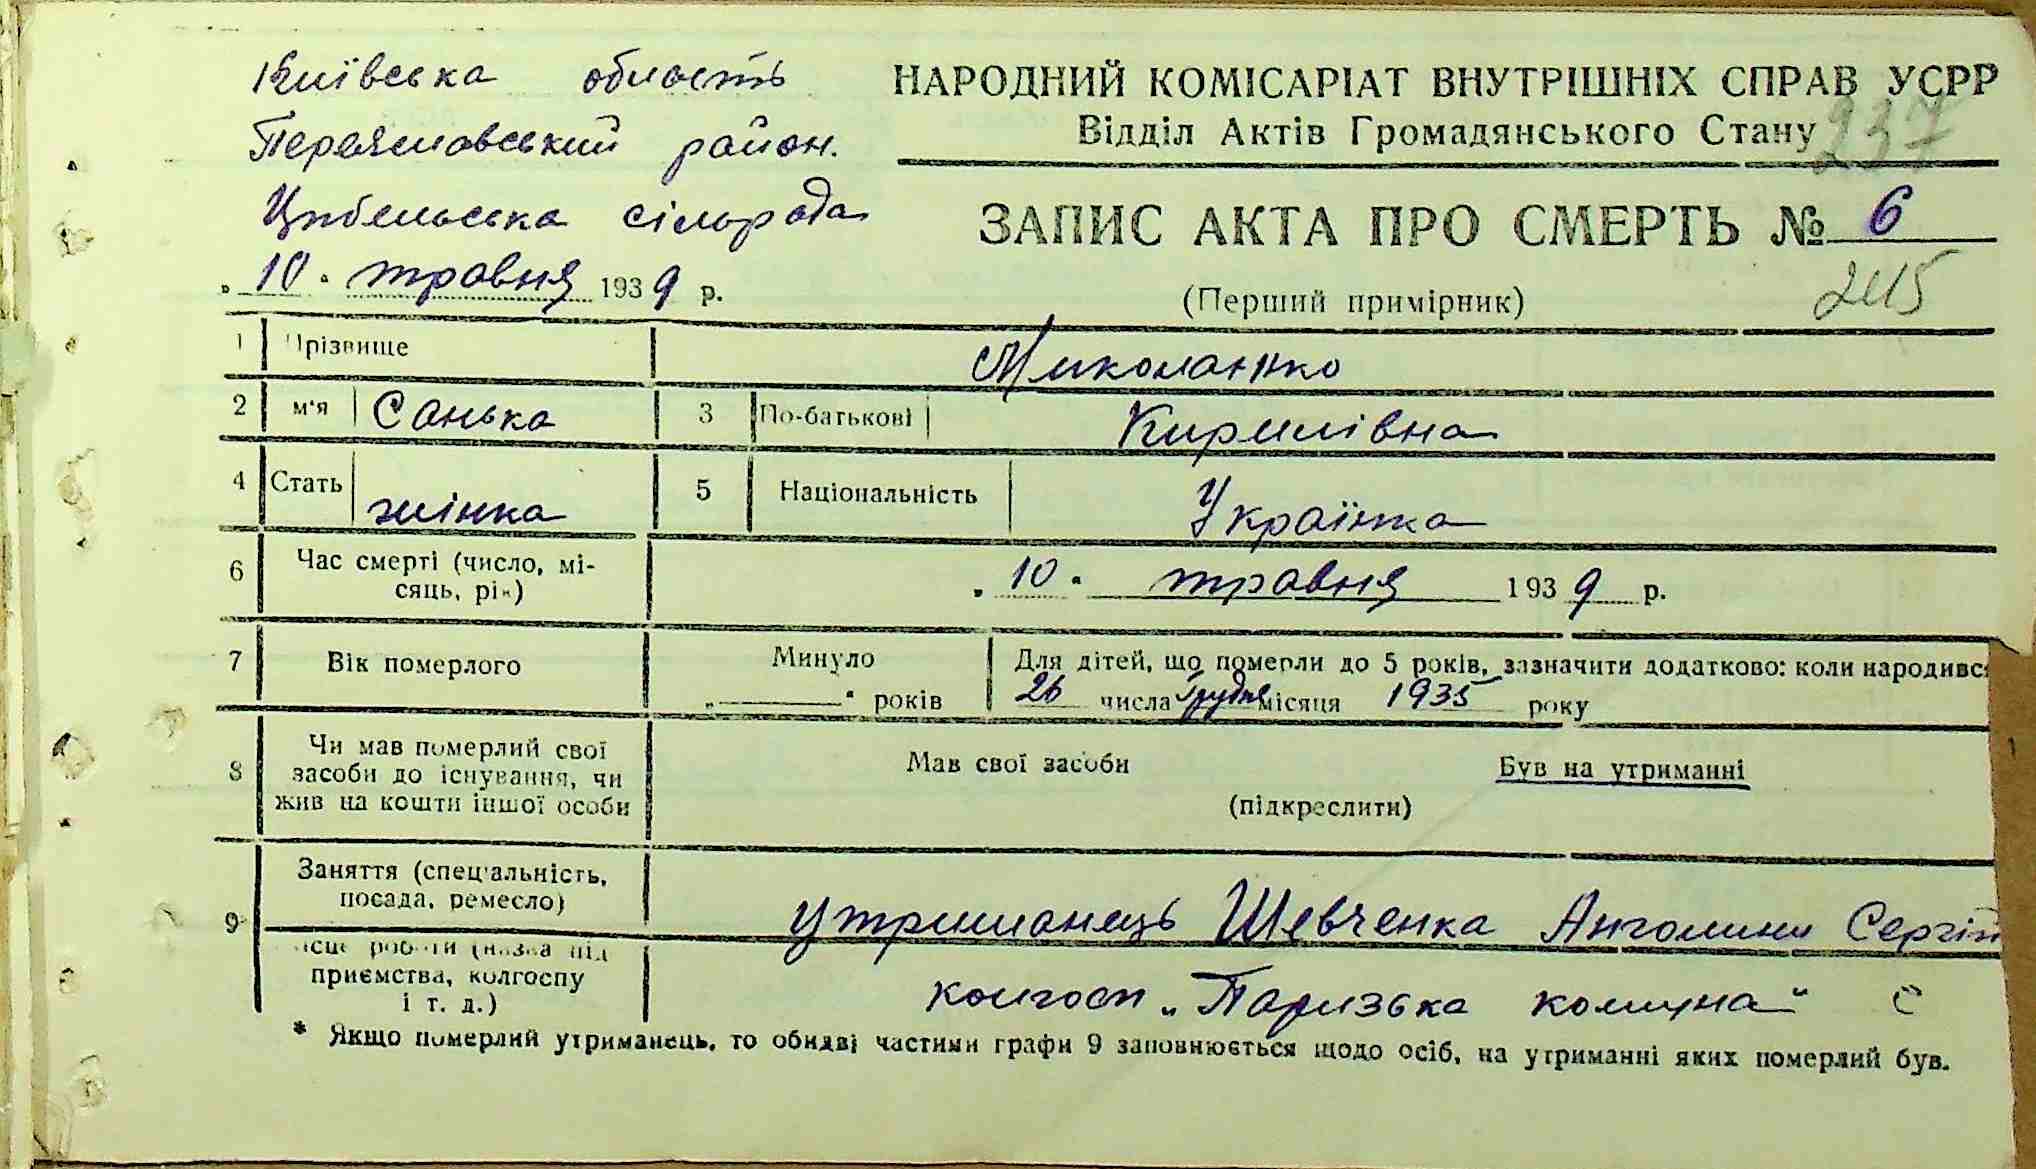 Київська область
Переяславський район.
Цибельська сільрада
„10" травня 1939 р.
НАРОДНИЙ КОМІСАРІАТ ВНУТРІШНІХ СПРАВ УСРР
Відділ Актів Громадянського Стану
237
ЗАПИС АКТА ПРО СМЕРТЬ № 6
(Перший примірник)
245
1 Прізвище Миколаєнко
2 м'я Санька 3 По-батькові Кирилівна
4 Стать жінка 5 Національність Українка
6 Час смерті (число, мі-
сяць, рік) „10" травня 1939 р.
7 Вік померлого Минуло „—" років
Для дітей, що померли до 5 років, зазначити додатково: коли народивс
26 числа Грудня місяця 1935 року
8 Чи мав померлий свої
засоби до існування, чи
жив на кошти іншої особи
Мав свої засоби Був на утриманні
(підкреслити)
9 Заняття (спеціальність,
посада, ремесло)
утриманець Шевченка Антонини Сергій
ісце роботи (назва під
приємства, колгоспу
і т. д.)
колгосп „Паризька комуна" С
* Якщо померлий утриманець, то обидві частини графи 9 заповнюється щодо осіб, на утриманні яких померлий був.